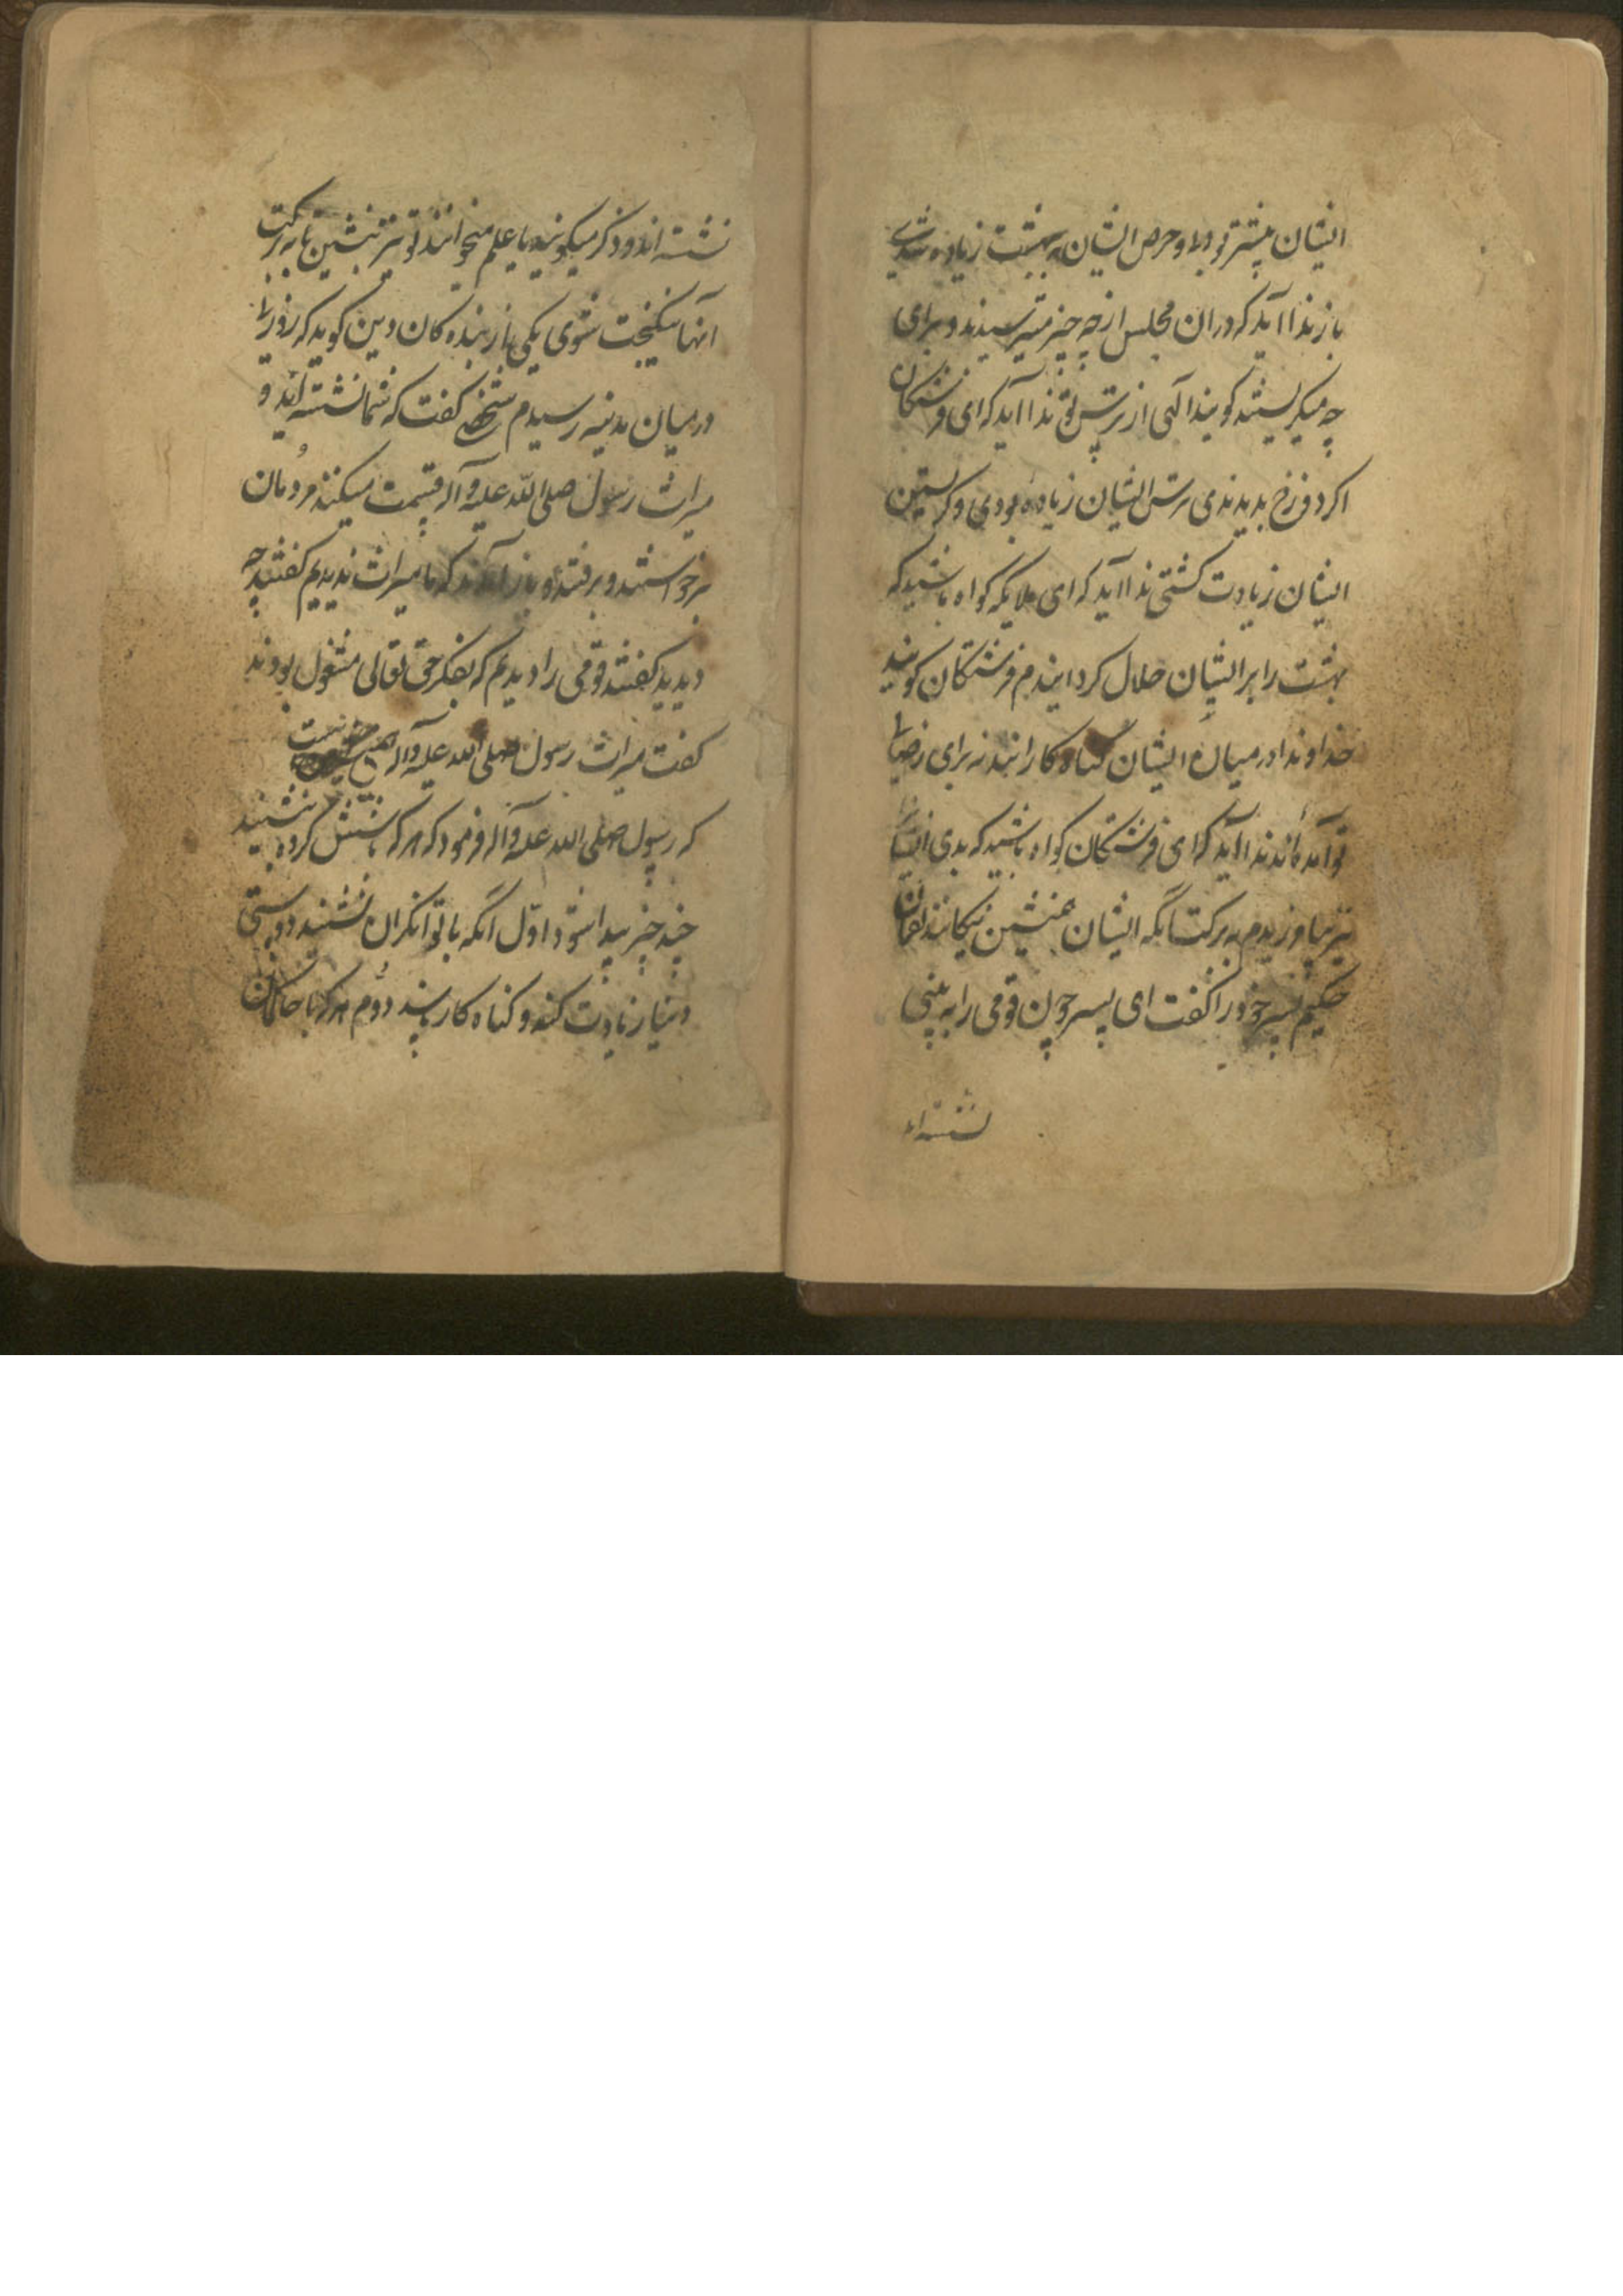 ایشان بیشتر بودی و حرص ایشان به بهشت زیاده شدی
باز ندا آید که در ان مجلس از چه چیز میترسیدند و برای
چه میکریستند کویند الهی از ترس تو ندا آید که ای فرشتکان
اکر دوزخ بدیدندی ترس ایشان زیاده بودی و کریستن
ایشان زیادت کشتی ندا آید که ای ملایکه کواه باشید که
بهشت را بر ایشان حلال کردانیدم فرشتکان کویند
خداوندا در میان ایشان کناه کارانند نه برای رضای
تو آمده‌اند ندا آید که ای فرشتکان کواه باشید که بدی ایشان
نیز بیامرزیدم به برکت آنکه ایشان همنشین نیکانند لقمان
حکیم پسر خود را کفت ای پسر چون قومی را به بینی
نشسته‌اند
نشسته‌اند و ذکر میکویند یا علم میخوانند تو نیز بنشین تا به برکت
آنها نیکبخت شوی یکی از بنده کان دین کوید که روزی
در میان مدینه رسیدم شخصی کفت که شما نشسته‌اید و
میراث رسول صلی الله علیه و آله قسمت میکنند مردمان
برخواستند و برفتند و باز آمدند که ما میراث ندیدیم کفتند چه
دیدید کفتند قومی را دیدیم که بفکر حق تعالی مشغول بودند
کفت میراث رسول صلی الله علیه و آله همین است
که رسول صلی الله علیه و آله فرمود که هر که با شش کروه بنشیند
چند چیز پیدا شود اول آنکه با توانکران نشیند دوستی
دنیا زیادت کند و کناه کار باشد دوم هر که با حاکمان